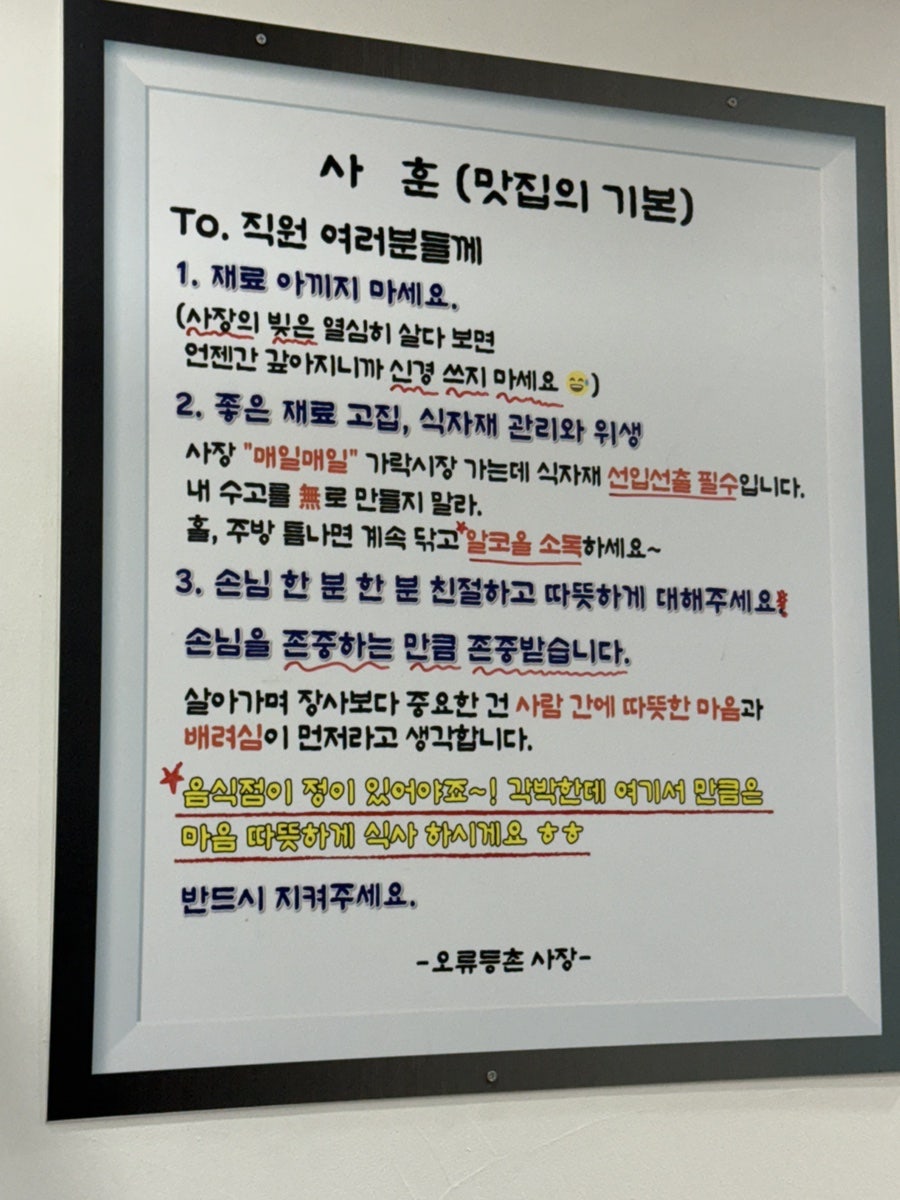 사 훈 (맛집의 기본)
To. 직원 여러분들께
1. 재료 아끼지 마세요.
(사장의 빚은 열심히 살다 보면
언젠간 갚아지니까 신경 쓰지 마세요 😄)
2. 좋은 재료 고집, 식자재 관리와 위생
사장 "매일매일" 가락시장 가는데 식자재 선입선출 필수입니다.
내 수고를 無로 만들지 말라.
홀, 주방 틈나면 계속 닦고*알코올 소독하세요~
3. 손님 한 분 한 분 친절하고 따뜻하게 대해주세요!
손님을 존중하는 만큼 존중받습니다.
살아가며 장사보다 중요한 건 사람 간에 따뜻한 마음과
배려심이 먼저라고 생각합니다.
★음식점이 정이 있어야죠~! 각박한데 여기서 만큼은
마음 따뜻하게 식사 하시게요 ㅎㅎ
반드시 지켜주세요.
-오류등촌 사장-